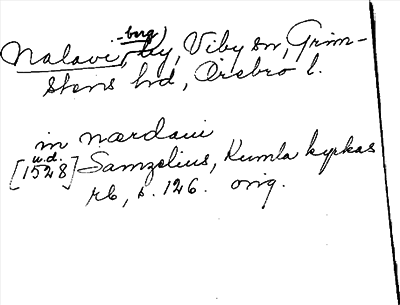 -berg)
Nalavi, by, Viby sn, Grim-
stens hd, Örebro l.
in nærdaui
u.d.
[1528] Samzelius, Kumla kyrkas
rb, s. 126. orig.